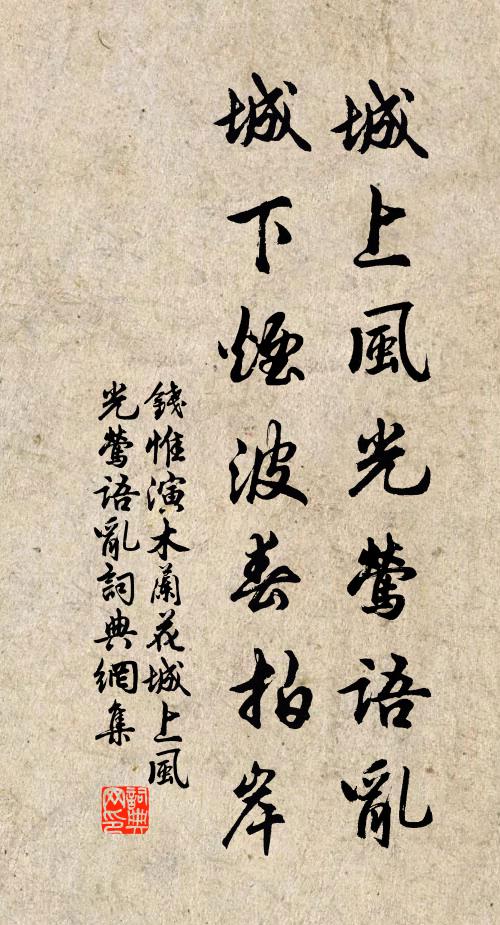 城上風光鶯語亂
城下煙波春拍岸
錢惟演木蘭花城上風
光鶯語亂詞典網集
詞典
网印